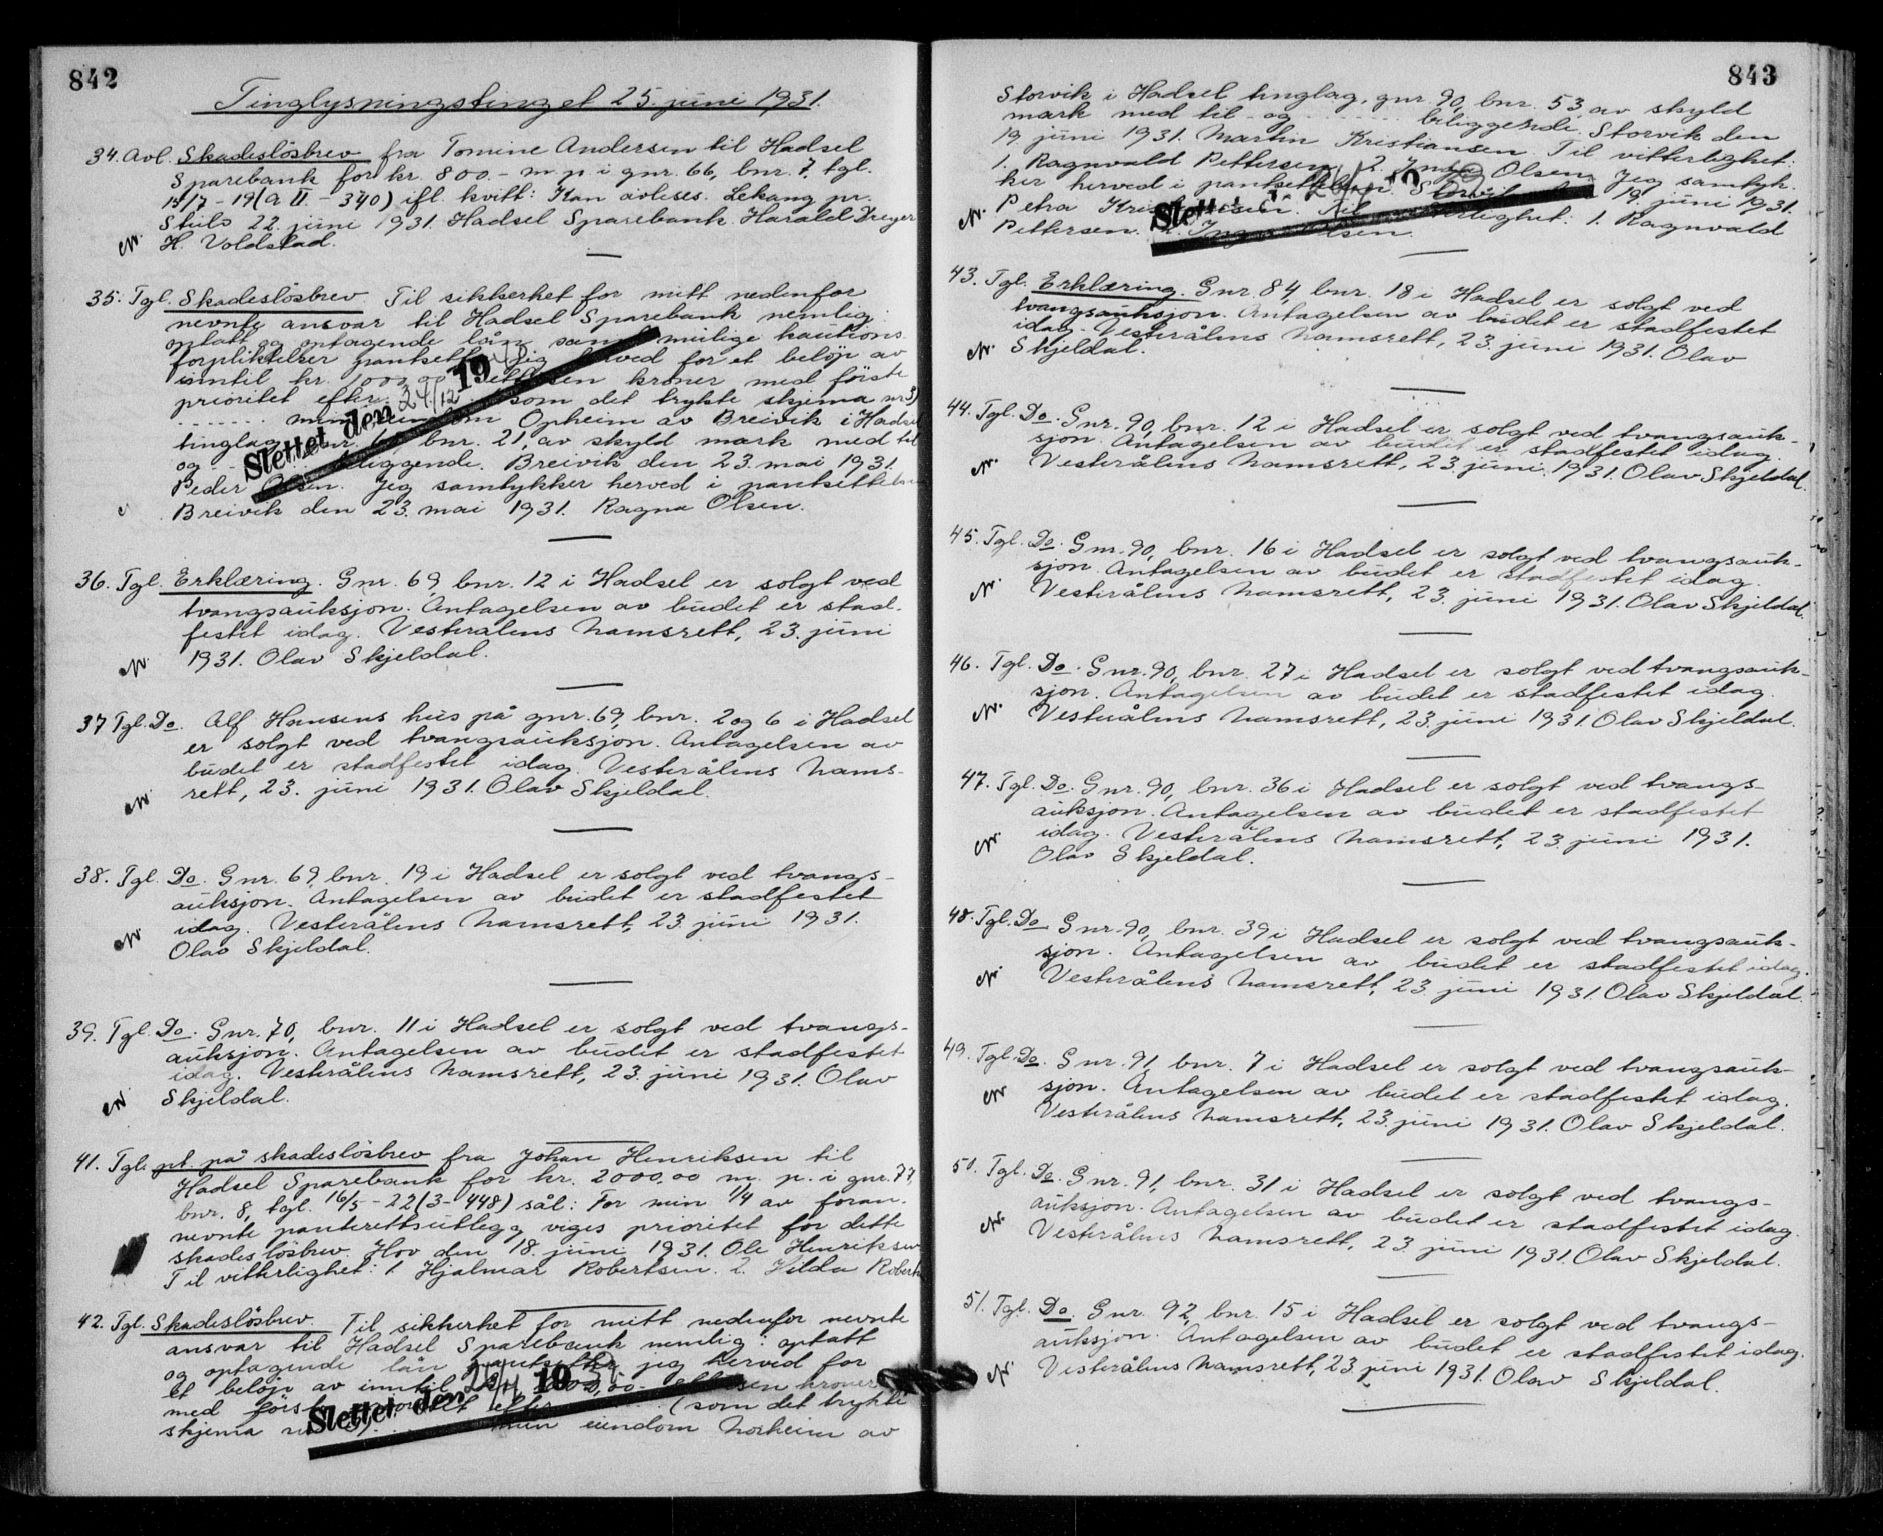 842
Tinglysningstinget 25. juni 1931.
34. Avl. Skadesløsbrev fra Tomine Andersen til Hadsel
Sparebank for kr. 800.- m. p. i gnr. 66, bnr. 7, tgl.
17-19 (A II - 340) ifl. kvitt: Kan avleses. Lekang pr.
22. juni 1931. Hadsel Sparebank. Harald Dreyer
H. Voldstad.
35. Tgl. Skadesløsbrev. Til sikkerhet for mitt nedenfor
nevnte ansvar til Hadsel Sparebank nemlig:
optatt og optagende lån samt mulige kautions
forpliktelser pantsetter jeg herved for et beløp av
inntil kr. 1000,00 - ettusen kroner med første
prioritet efter . . . . (som det trykte skjema nr 3)
. . . . . . . min eiendom Opheim av Breivik i Hadsel
tinglag, gnr. bnr. 21, av skyld mark med til
og . . . . beliggende. Breivik den 23. mai 1931.
Peder Olsen. Jeg samtykker herved i pantsettelsen
Breivik den 23. mai 1931. Ragna Olsen.
Slettet den 24/12 19
36. Tgl. Erklæring. Gnr. 69, bnr. 12 i Hadsel er solgt ved
tvangsauksjon. Antagelsen av budet er stad-
festet idag. Vesterålens Namsrett, 23. juni
1931. Olav Skjeldal.
37 Tgl. Do. Alf Hansens hus på gnr. 69, bnr. 2 og 6 i Hadsel
er solgt ved tvangsauksjon. Antagelsen av
budet er stadfestet idag. Vesterålens Nams-
rett, 23. juni 1931. Olav Skjeldal.
38. Tgl. Do. Gnr. 69, bnr. 19 i Hadsel er solgt ved tvangs-
auksjon. Antagelsen av budet er stadfestet
idag. Vesterålens Namsrett, 23. juni 1931.
Olav Skjeldal.
39. Tgl. Do. Gnr. 70, bnr. 11 i Hadsel er solgt ved tvangs-
auksjon. Antagelsen av budet er stadfestet
idag. Vesterålens Namsrett, 23. juni 1931. Olav
Skjeldal.
41. Tgl. pt. på skadesløsbrev fra Johan Henriksen til
Hadsel Sparebank for kr. 2000,00 m. p. i gnr. 77,
bnr. 8, tgl. 16/5 - 22 (3-448) sål: For min 1/4 av foran-
nevnte panterettsutlegg viges prioritet for dette
skadesløsbrev. Hov den 18. juni 1931. Ole Henriksen
Til vitterlighet: 1. Hjalmar Robertsen. 2. Hilda Roberts
42. Tgl. Skadesløsbrev. Til sikkerhet for mitt nedenfor nevnte
ansvar til Hadsel Sparebank nemlig: optatt
og optagende lån pantsetter jeg herved for
et beløp av inntil kr. 1000,00 - ettusen kroner
med første prioritet efter . . . . (som det trykte
skjema . . . . min eiendom Norheim av
Slettet den 26/11 19
843
Storvik i Hadsel tinglag, gnr. 90, bnr. 53, av skyld
mark med til og . . . . . . beliggende. Storvik den
19. juni 1931. Martin Kristiansen. Til vitterlighet:
1. Ragnvald Pettersen 2. Olsen. Jeg samtyk-
ker herved i pantsettelsen. Storvik 19. juni 1931.
Petra Kristiansen. Til vitterlighet: 1. Ragnvald
Pettersen. 2. Olsen.
Slettet
43. Tgl. Erklæring. Gnr. 84, bnr. 18 i Hadsel er solgt ved
tvangsauksjon. Antagelsen av budet er stadfestet
idag. Vesterålens Namsrett, 23. juni 1931. Olav
Skjeldal.
44. Tgl. Do. Gnr. 90, bnr. 12 i Hadsel er solgt ved tvangsauk-
sjon. Antagelsen av budet er stadfestet idag.
Vesterålens Namsrett, 23. juni 1931. Olav Skjeldal.
45. Tgl. Do. Gnr. 90, bnr. 16 i Hadsel er solgt ved tvangsauk-
sjon. Antagelsen av budet er stadfestet idag.
Vesterålens Namsrett, 23. juni 1931. Olav Skjeldal.
46. Tgl. Do. Gnr. 90, bnr. 27 i Hadsel er solgt ved tvangsauk-
sjon. Antagelsen av budet er stadfestet idag.
Vesterålens Namsrett, 23. juni 1931. Olav Skjeldal.
47. Tgl. Do. Gnr. 90, bnr. 36 i Hadsel er solgt ved tvangs-
auksjon. Antagelsen av budet er stadfestet
idag. Vesterålens Namsrett, 23. juni 1931.
Olav Skjeldal.
48. Tgl. Do Gnr. 90, bnr. 39 i Hadsel er solgt ved tvangsauk-
sjon. Antagelsen av budet er stadfestet idag.
Vesterålens Namsrett, 23. juni 1931. Olav Skjeldal.
49. Tgl. Do. Gnr. 91, bnr. 7 i Hadsel er solgt ved tvangsauk-
sjon. Antagelsen av budet er stadfestet idag.
Vesterålens Namsrett, 23. juni 1931. Olav Skjeldal.
50. Tgl. Do. Gnr. 91, bnr. 31 i Hadsel er solgt ved tvangs-
auksjon. Antagelsen av budet er stadfestet idag.
Vesterålens Namsrett, 23. juni 1931. Olav Skjeldal.
51. Tgl. Do. Gnr. 92, bnr. 15 i Hadsel er solgt ved tvangs-
auksjon. Antagelsen av budet er stadfestet idag.
Vesterålens Namsrett, 23. juni 1931. Olav Skjeldal.